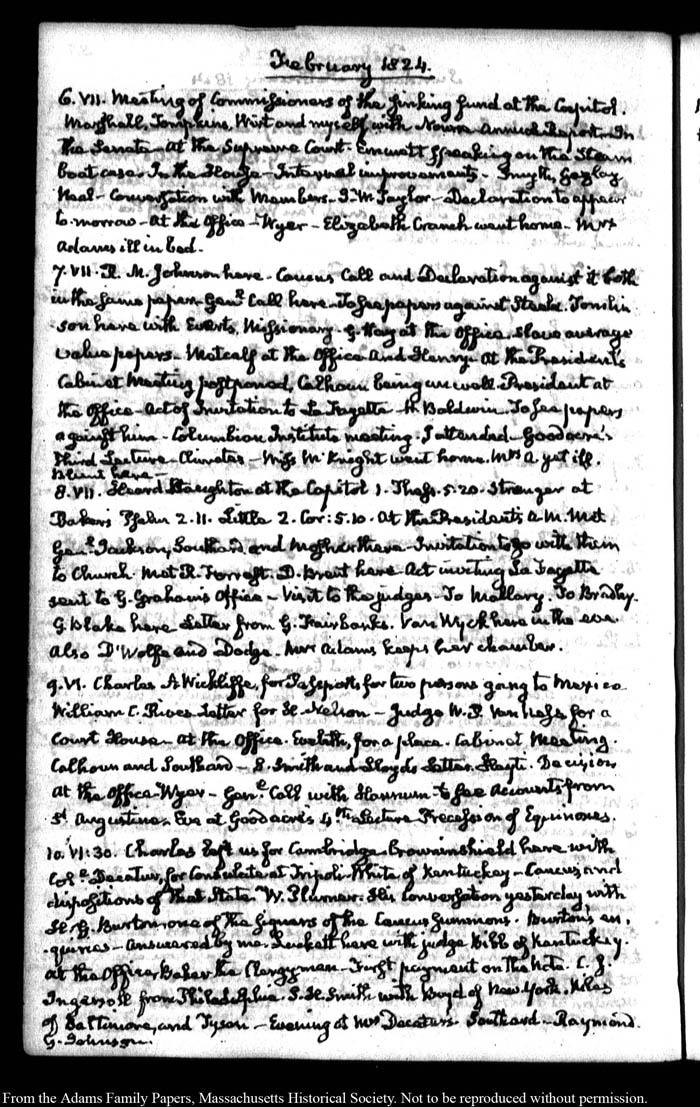 February 1824.
6. VII. Meeting of Commissioners of the sinking fund at the Capitol.
Marshall, Tompkins, Wirt and myself with Nourse Annual Report. In
the Senate – at the Supreme Court. Emmett speaking on the Steam
boat case. In the House – Internal improvements – Smyth, Gazlay
Neal – Conversation with Members. J. W. Taylor – Declaration to appear
to-morrow – at the Office – Wyer – Elizabeth Cranch went home. Mrs
Adams ill in bed.
7. VII. R. M. Johnson here – Caucus Call and Declaration against it both
in the same paper. Genl. Call here – To see papers against Steele. Tomlin
son here with Everts, Missionary – G. Hay at the Office. Slave average
value papers – Metcalf at the Office and Henry. At the President's
Cabinet Meeting postponed, Calhoun being unwell. President at
the Office – Act of Invitation to La Fayette – H. Baldwin. To see papers
against him – Columbian Institute meeting. I attended – Goodacre's
third Lecture – Climates – Miss McKnight went home. Mrs A. yet ill.
here –
8. VII. Heard Staughton at the Capitol 1. Thess. 5.20. Stranger at
Baker's Psalm 2.11. Little 2. Cor: 5.10. At the President's A.M. Met
Genl. Jackson, Southard and Mosher there – Invitation to go with them
to Church. Met R. Forrest. D. Brent here – Act inviting La Fayette
sent to G. Graham's Office – Visit to the judges. To Mallary. To Bradley.
G. Blake here Letter from G. Fairbanks. Van Wyck here in the eve
also D'Wolfe and Dodge – Mrs Adams keeps her chamber.
9. VI. Charles A. Wickliffe, for Passports for two persons going to Mexico
William C. Rives Letter for H. Nelson – Judge W. P. Van Ness for a
Court House – At the Office. Eveleth, for a place. Cabinet Meeting.
Calhoun and Southard – S. Smith and Lloyds Letter. Hayti. Decision
at the Office – Wyer – Genl. Call with Hannum to see Accounts from
St. Augustine. Eve at Goodacre's 4th Lecture Precession of Equinoxes.
10. VI:30. Charles left us for Cambridge. Crowninshield here with
Col. Decatur, for Consulate at Tripoli – White of Kentuckey – Caucus and
dispositions of that State. W. Plumer. His Conversation yesterday with
H. G. Burton, one of the signers of the Caucus Summons. Burton's en.
quiries – answered by me. Luckett here with judge Bibb of Kentuckey.
At the Office. Baker the Clergyman – First payment on the Note. C. J.
Ingersoll from Philadelphia. S. H. Smith with Boyd of New York. Niles
of Baltimore, and Tyson – Evening at Mrs Decatur's. Southard – Raymond.
G. Johnson.
From the Adams Family Papers, Massachusetts Historical Society. Not to be reproduced without permission.